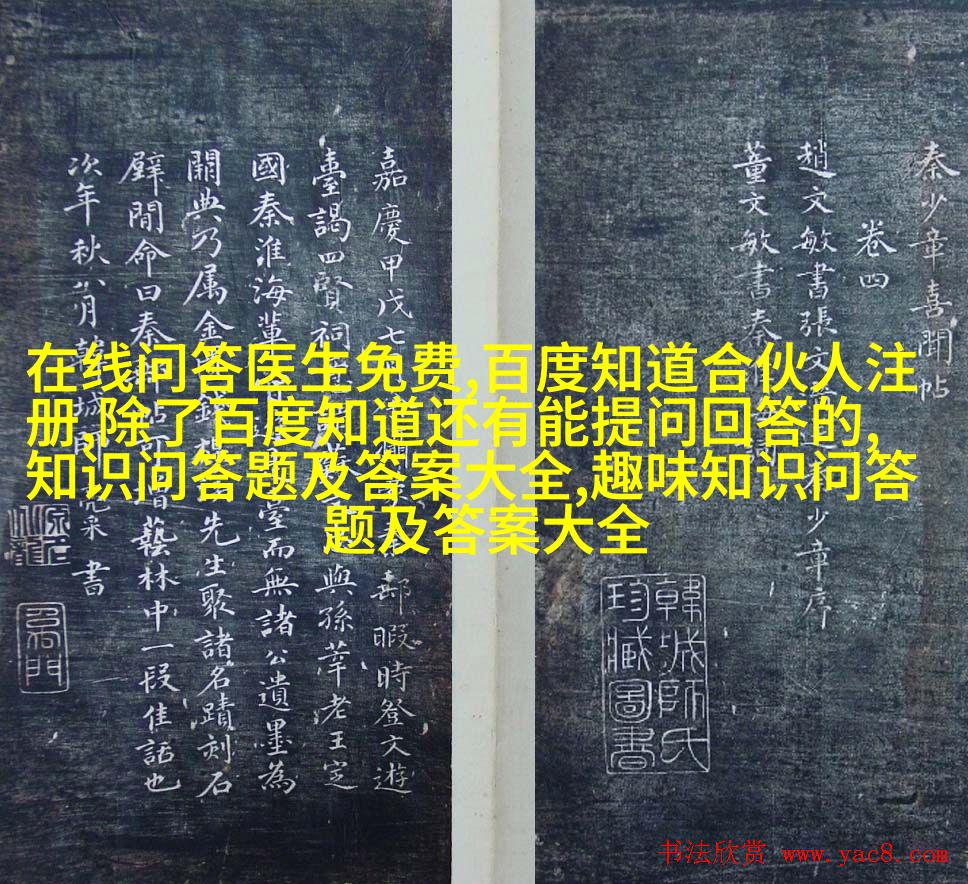 秦少章喜聞帖
卷四
趙文敏書張文
少章序
董文敏書秦
韓城師氏
珍藏圖書
嘉慶甲戌七
郵暇時登文遊
臺謁四賢祠
與孫莘老王定
國秦淮海輩
臺而無諸公遺墨為
闕典乃属金
先生聚諸名蹟刻石
壁間命曰秦郵帖
增藝林中一段佳話也
次年秋八月韓城師亮采書
在线问答医生免费,百度知道合伙人注
册,除了百度知道还有能提问回答的,
知识问答题及答案大全,趣味知识问答
题及答案大全
书法欣赏 www.yac8.com